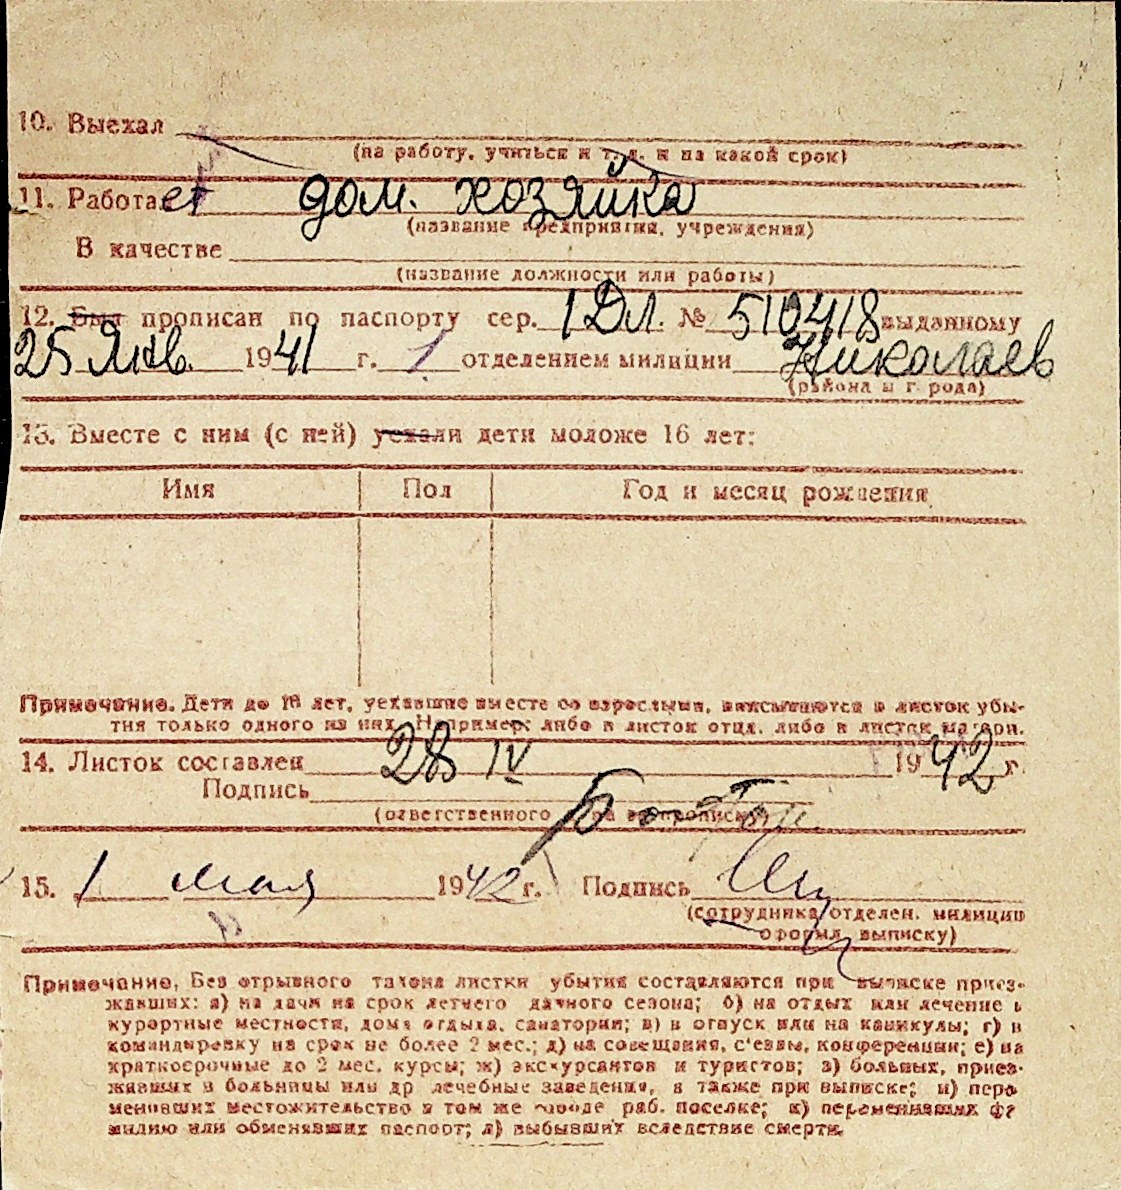 10. Выехал
(на работу, учиться и т. д. и на какой срок)
11. Работает дом. хозяйка
(название предприятия, учреждения)
В качестве
(название должности или работы)
12. Был прописан по паспорту сер. 1 Дл. № 510418 выданному
25 Янв. 1941 г. 1 отделением милиции Николаев
(района и города)
13. Вместе с ним (с ней) уехали дети моложе 16 лет:
Имя Пол Год и месяц рождения
Примечание. Дети до 16 лет, уехавшие вместе со взрослыми, вписываются в листок убы-
тия только одного из них. Например: либо в листок отца, либо в листок матери.
14. Листок составлен 28 IV 1942 г.
Подпись
(ответственного за прописку)
15. 1 мая 1942 г. Подпись
(сотрудника отделен. милиции
оформл. выписку)
Примечание. Без отрывного талона листки убытия составляются при выписке приез-
жавших: а) на дачи на срок летнего дачного сезона; б) на отдых или лечение в
курортные местности, дома отдыха, санатории; в) в отпуск или на каникулы; г) в
командировку на срок не более 2 мес.; д) на совещания, с'езды, конференции; е) на
краткосрочные до 2 мес. курсы; ж) экскурсантов и туристов; з) больных, приез-
жавших в больницы или др лечебные заведения, а также при выписке; и) пере
менивших местожительство в том же городе раб. поселке; к) переменивших фа
милию или обменявших паспорт; л) выбывших вследствие смерти.